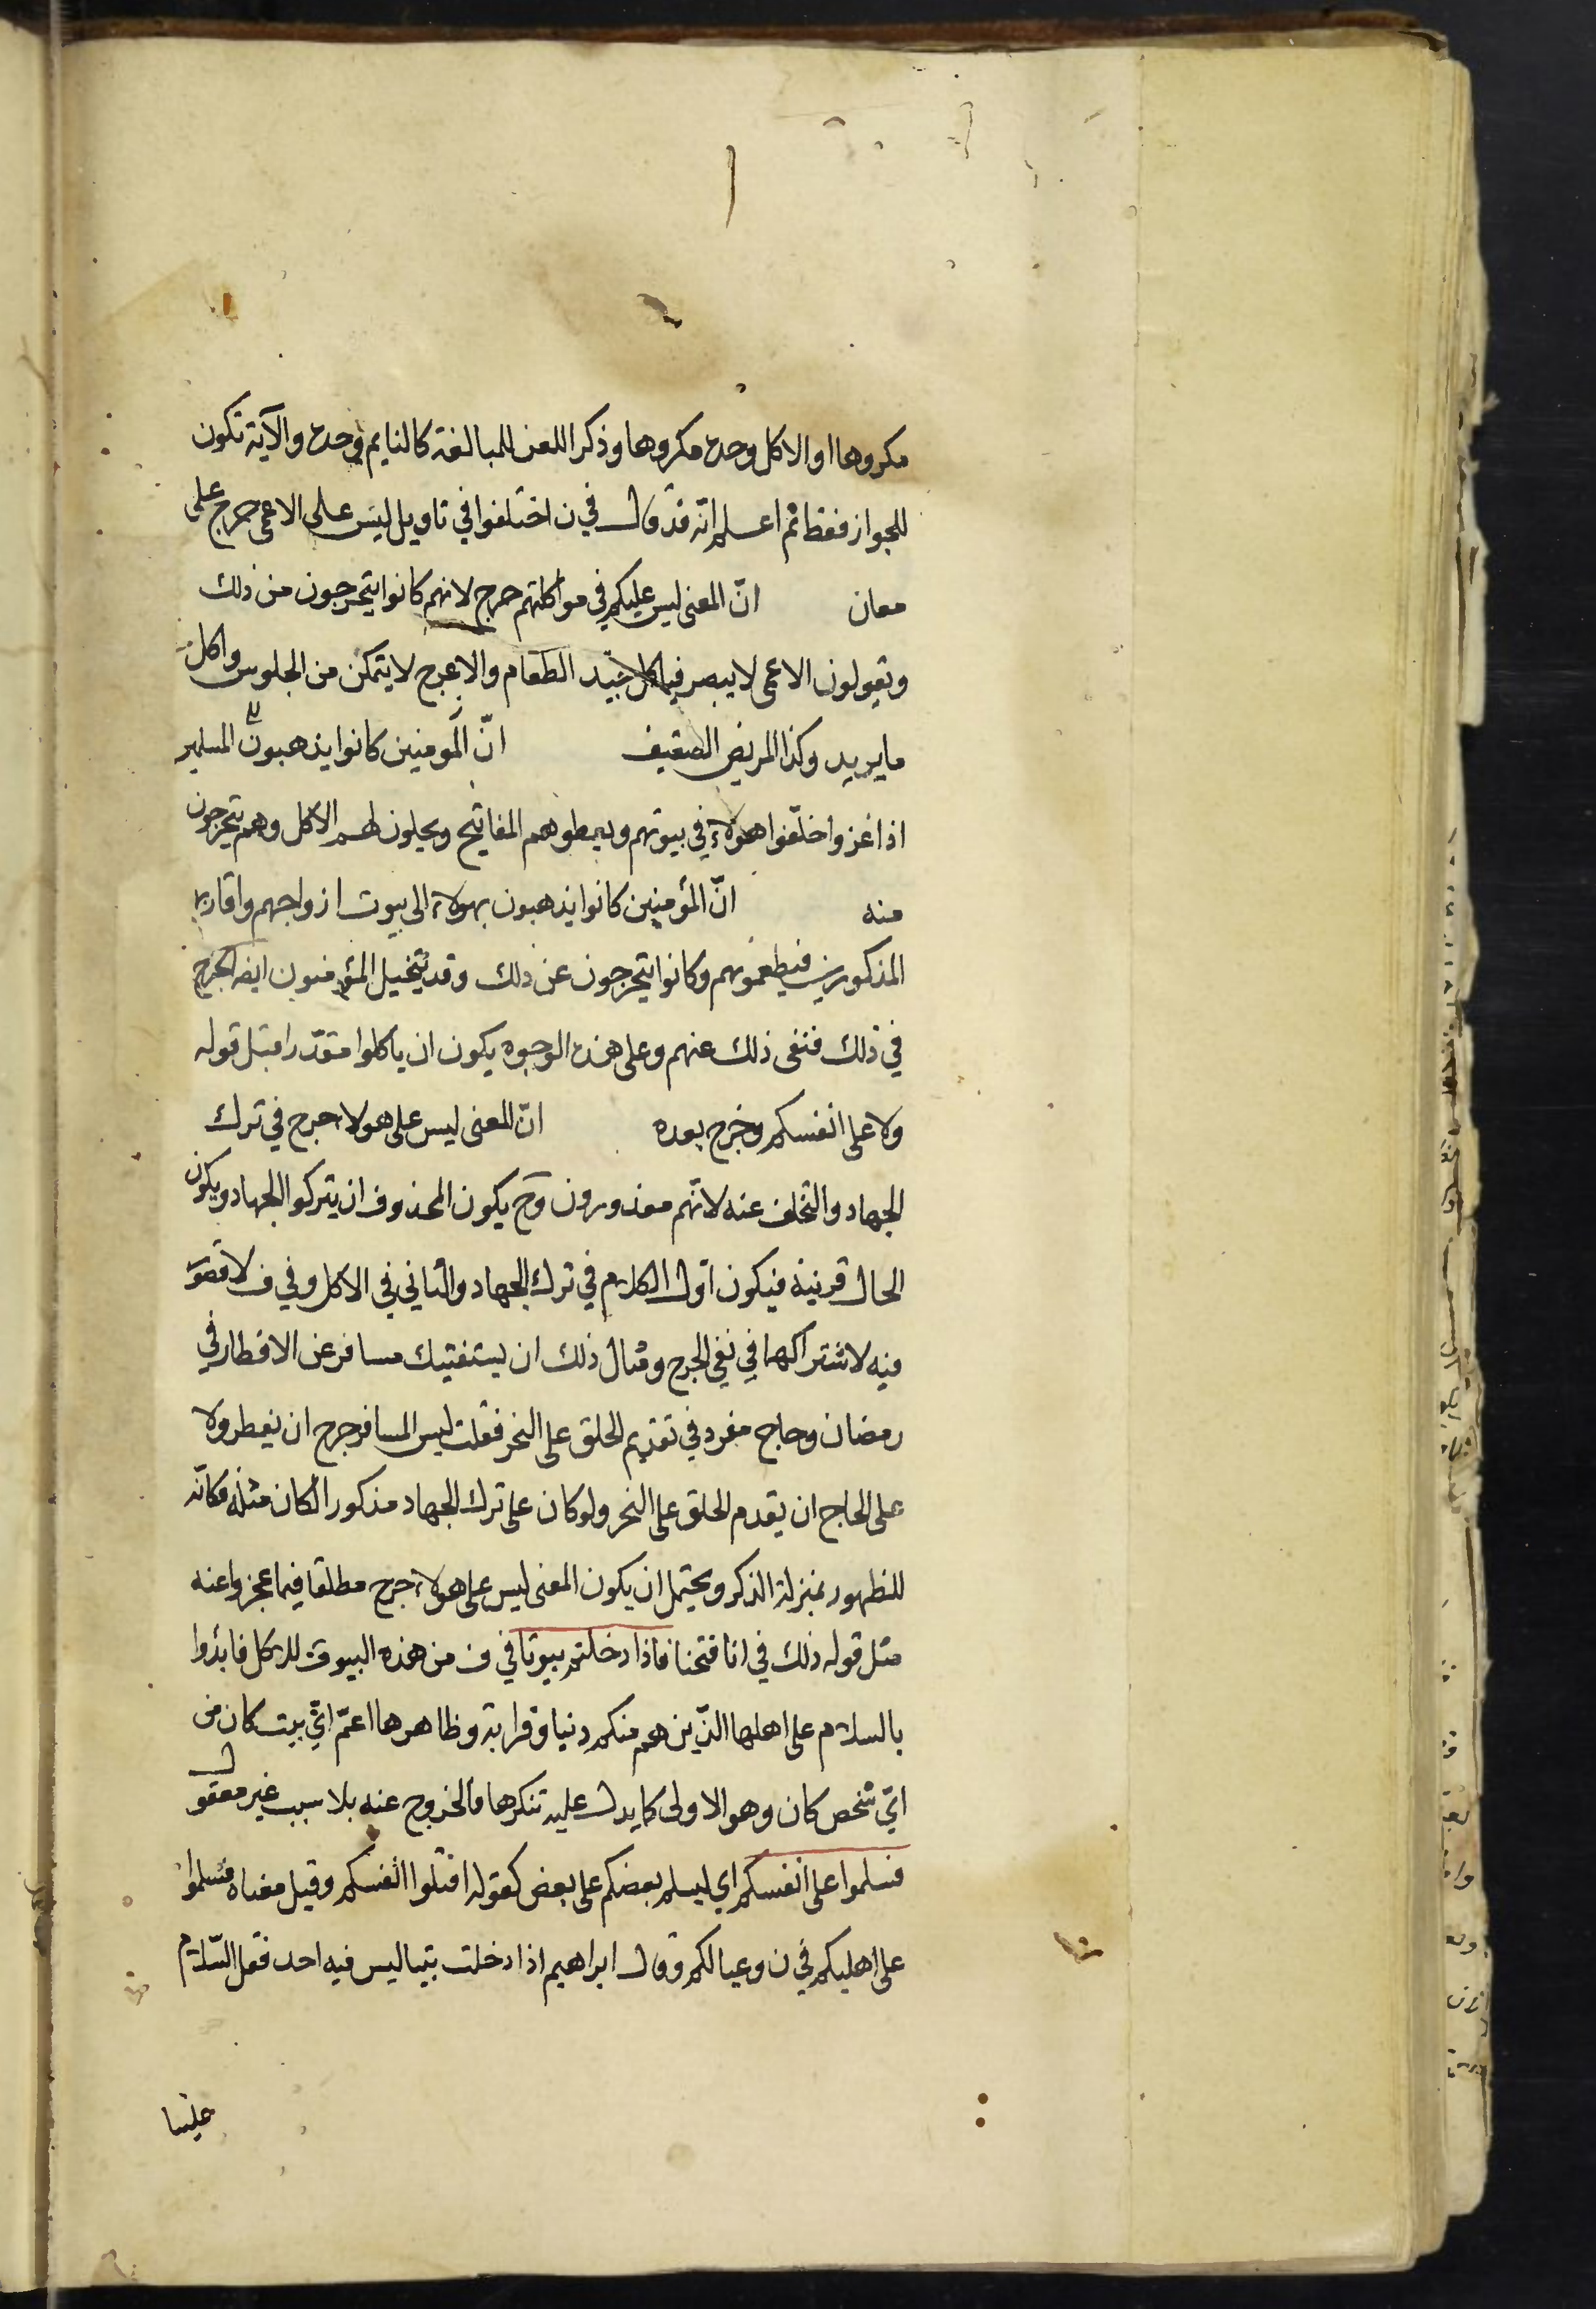 مكروها او الاكل وحده مكروها وذكر اللعن للمبالغة كالنايم وحده والآية تكون
للجواز فقط ثم اعلم انّه قد قال في ن اختلفوا في تاويل ليس على الاعمى حرج على
معان انّ المعنى ليس عليكم في مواكلتهم حرج لانهم كانوا يتحرجون من ذلك
وتقولون الاعمى لا يبصر فياكل جيد الطعام والاعرج لا يتمكن من الجلوس واكل
ما يريد وكذا المريض الضعيف انّ المومنين كانوا يذهبون المسلمير
اذا غزوا خلّفوا هولاء في بيوتهم ويعطوهم المفاتيح ويحلون لهم الاكل وهم يتحرجون
منه انّ المؤمنين كانوا يذهبون بهولاء الى بيوت ازواجهم واقاربـ
المذكورين فيطعمونهم وكانوا يتحرجون عن ذلك وقد يتخيل المؤمنون ايضا الحرج
في ذلك فنفى ذلك عنهم وعلى هذه الوجوه يكون ان ياكلوا مقدّرا قبل قوله
ولا على انفسكم وخرج بعده انّ المعنى ليس على هولا حرج في ترك
الجهاد والتخلف عنه لانّهم معذورون وح يكون المحذوف ان يتركوا الجهاد ويكون
الحال قرينة فيكون اوّل الكلام في ترك الجهاد والثاني في الاكل وفي ف لا قصور
فيه لاشتراكهما في نفي الحرج ومثال ذلك ان يستفتيك مسافر عن الافطار في
رمضان وحاج مفرد في تقديم الحلق على النحر فقلت ليس المسافر حرج ان يفطر ولا
على الحاج ان يقدم الحلق على النحر ولو كان على ترك الجهاد مذكورا لكان مثله فكانّه
للظهور بمنزلة الذكر ويحتمل ان يكون المعنى ليس على هولاء حرج مطلقا فيما عجزوا عنه
مثل قوله ذلك في انا فتحنا فاذا دخلتم بيوتا في ف من هذه البيوت للاكل فابدوا
بالسلام على اهلها الذين هم منكم دنيا وقرابة وظاهرها اعمّ ايّ بيت كان من
ايّ شخص كان وهو الاولى كما يدل عليه تنكرها فالخروج عنه بلا سبب غير معقول
فسلموا على انفسكم اي ليسلم بعضكم على بعض كقوله اقتلوا انفسكم وقيل معناه فسلموا
على اهليكم في ن وعيالكم وقال ابراهيم اذا دخلت بيتا ليس فيه احد فقل السّلام
علينا